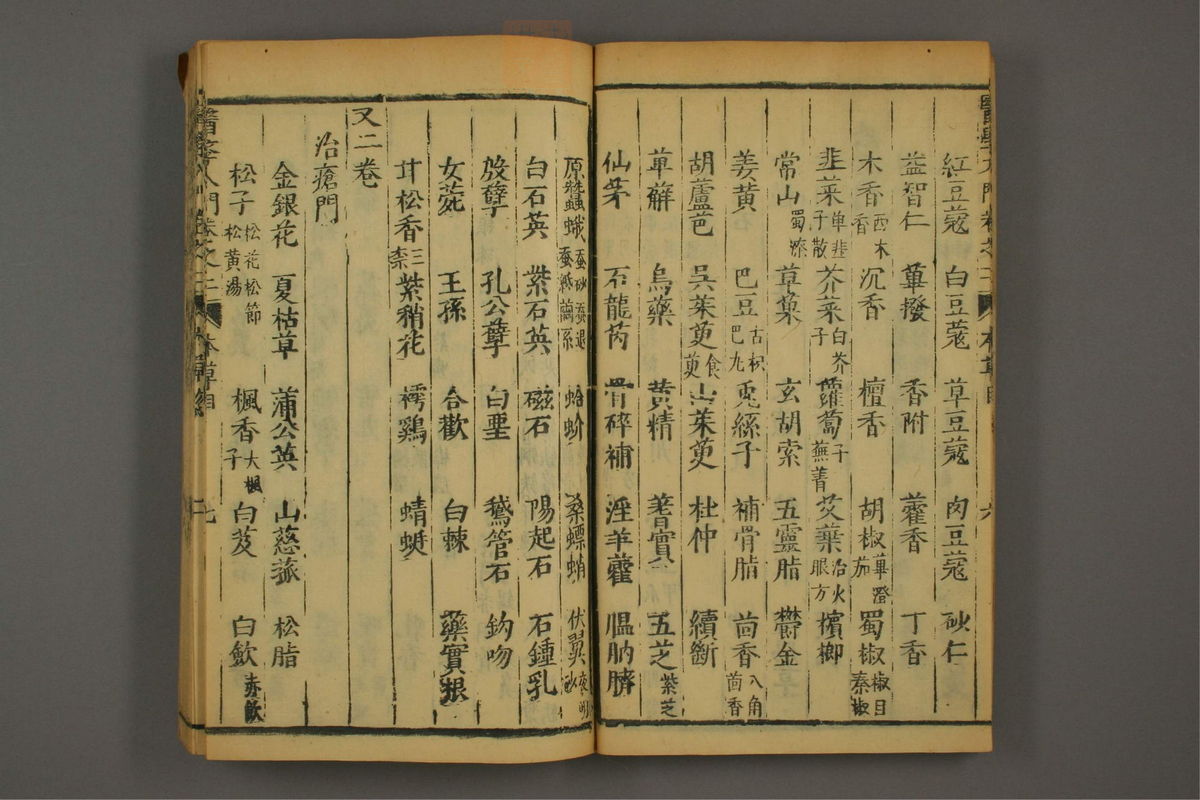 紅豆蔻 白豆蔻 草豆蔻 肉豆蔻 砂仁
益智仁 蓽撥 香附 藿香 丁香
木香西木香 沉香 檀香 胡椒蓽澄茄 蜀椒椒目秦椒
韭菜子單韭散 芥菜子白芥 蘿蔔子蕪菁 艾葉治火眼方 檳榔
常山蜀漆 草菓 玄胡索 五靈脂 鬱金
姜黄 巴豆古枳巴丸 兎絲子 補骨脂 茴香八角茴香
胡蘆芭 吳茱萸食萸 山茱萸 杜仲 續斷
萆薢 烏藥 黄精 蓍實 五芝紫芝
仙茅 石龍芮 骨碎補 淫羊藿 膃肭臍
原蠶蛾蚕砂蚕退蚕紙繭系 蛤蚧 桑螵蛸 伏翼夜明砂
白石英 紫石英 磁石 陽起石 石鍾乳
殷孽 孔公孽 白堊 鵝管石 鈎吻
女菀 王孫 合歡 白棘 藥實根
甘松香三柰 紫稍花 樗鷄 蜻蜓
又二卷
治瘡門
金銀花 夏枯草 蒲公英 山慈菰 松脂
松子松花松節松黄湯 楓香大楓子 白芨 白歛赤歛
醫學入門卷之二 本草目 七